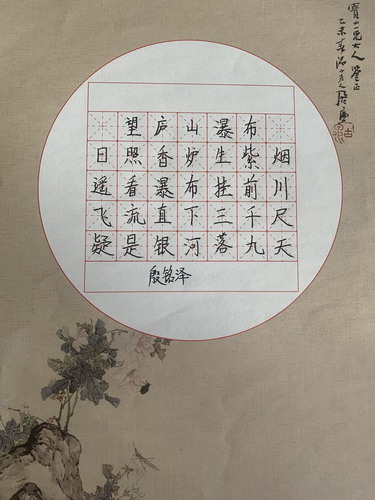 望庐山瀑布
日照香炉生紫烟
遥看瀑布挂前川
飞流直下三千尺
疑是银河落九天
殷铭泽
大人鑒正
乙未春居廉